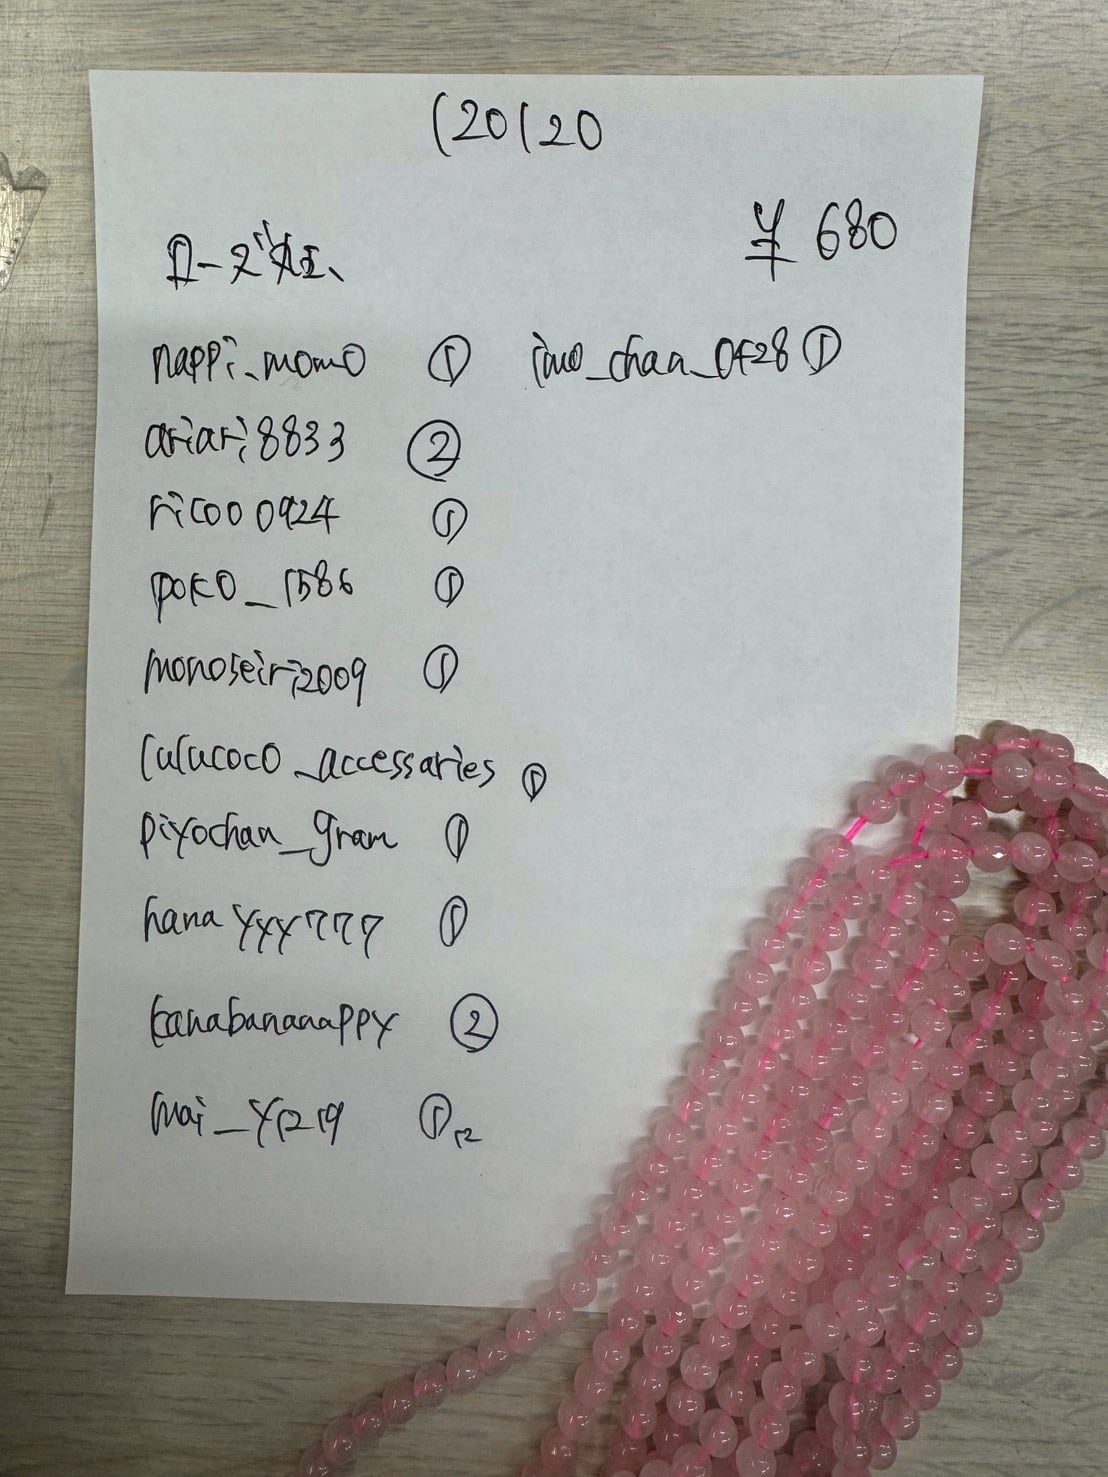 120120
ローズ红、
¥ 680
nappi_momo ① imo_chan_0428 ①
ariari8833 ②
ricooo0924 ①
poko_1586 ①
monoseiri2009 ①
lulucoco_accessaries ①
piyochan_gram ①
hanayyy777 ①
kanabananappy ②
mai_y1219 ① 12